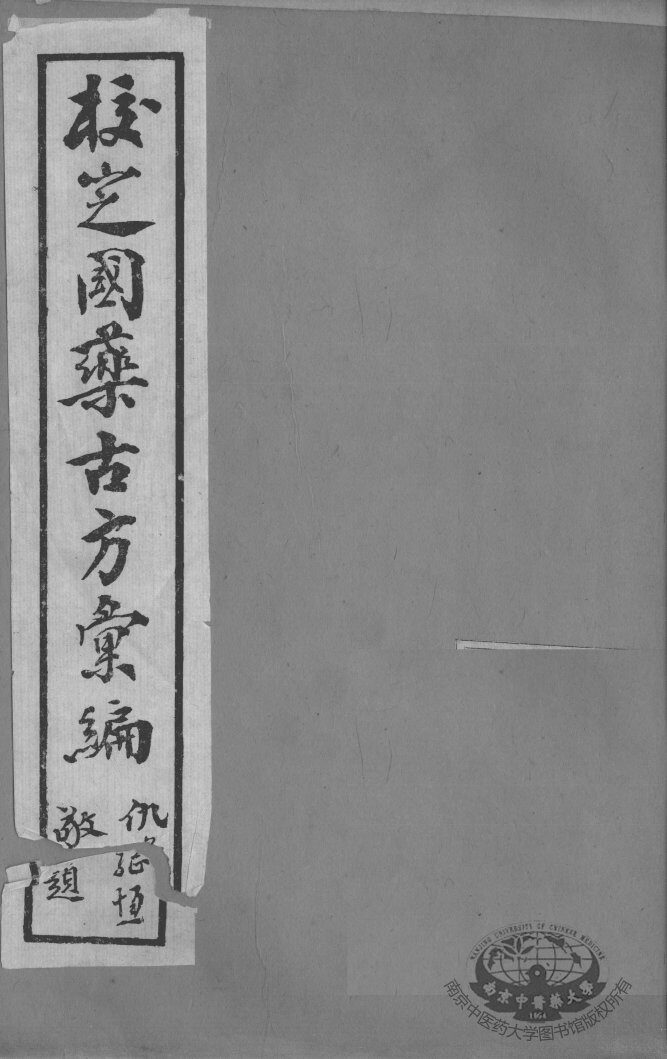 校定國藥古方彙編
仇繼恒
敬題
NANJING UNIVERSITY OF CHINESE MEDICINE
南京中醫藥大學
1954
南京中医药大学图书馆版权所有